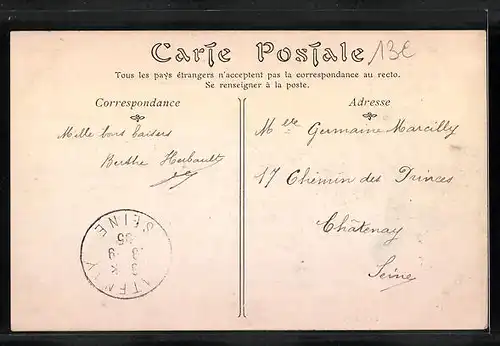 Carte Postale
13€
Tous les pays étrangers n'acceptent pas la correspondance au recto.
Se renseigner à la poste.
Correspondance
Adresse
Mille bons baisers
Berthe Herbault
Melle Germaine Marcilly
17 Chemin des Princes
Châtenay
Seine
SEINE